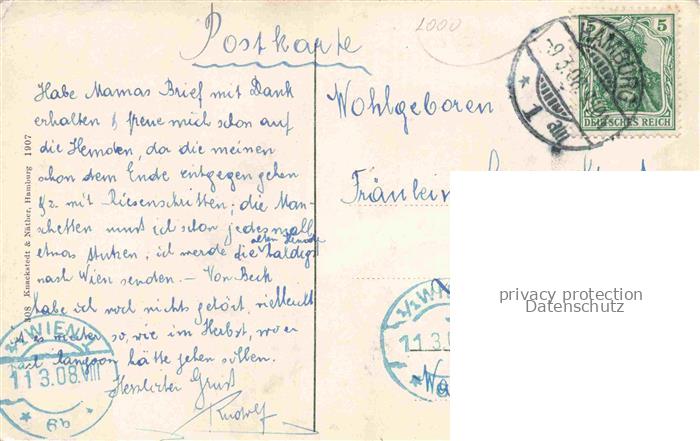 Postkarte
1000
Habe Mamas Brief mit Dank
erhalten & freue mich schon auf
die Hemden, da die meinen
schon dem Ende entgegen gehen
u. z. mit Riesenschritten; die Man-
schetten muß ich schon jedesmal
etwas stutzen, ich werde die alten Hemde baldigst
nach Wien senden. – Von Beck
habe ich noch nichts gehört, vielleicht
ist es wieder so, wie im Herbst, wo er
nach langson hätte gehen sollen.
Herzlicher Gruß
Rudolf
108 Knackstedt & Näther, Hamburg 1907
Wohlgeboren
Fräulein
HAMBURG
-9.3.08
* 1 am
5
DEUTSCHES REICH
1/1 WIEN 1
11.3.08.VIII
* 6b *
1/1 WIEN
11.3.0
privacy protection
Datenschutz